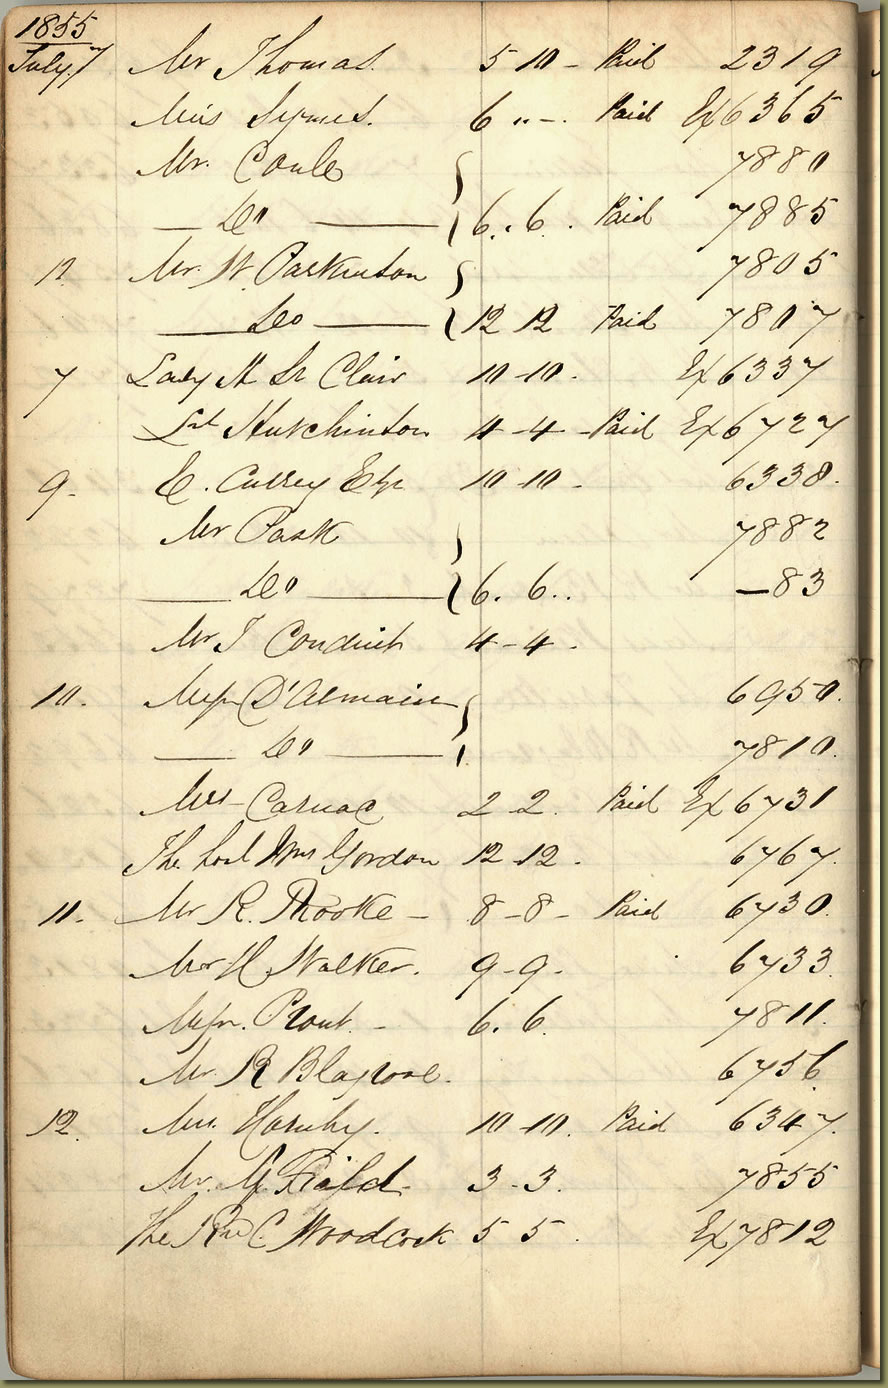 1855
July 7 Mr Thomas. 5 10 - Paid 2319
Miss Symes. 6 " - . Paid Ex 6365
Mr. Coule 7880
— Do — 6 . 6 . Paid 7885
12 Mr. W. Parkinton 7805
— Do — 12 12 Paid 7807
7 Lady H St Clair 10 - 10 . Ex 6337
Lt Hutchinson 4 - 4 - Paid Ex 6727
9. E. Currey Esqr 10 10 - 6338.
Mr Pask 7882
— Do — 6 . 6 . . — 83
Mr J Conduit 4 - 4 .
10. Messrs D'Almaine 6950.
— Do — 7810.
Mrs Carnac 2 2 . Paid Ex 6731
The Lord Wm Gordon 12 12 . 6767.
11. Mr R. Brooke - 8 - 8 - Paid 6730.
Mr H Walker. 9 - 9 . 6733.
Messrs. Prout. - 6 . 6 7811.
Mr. R Blagrove. 6756.
12. Mrs. Hornby. 10 - 10 . Paid 6347.
Mr. Field 3 - 3 . 7855
The Revd C. Woodcock 5 5 . Ex 7812